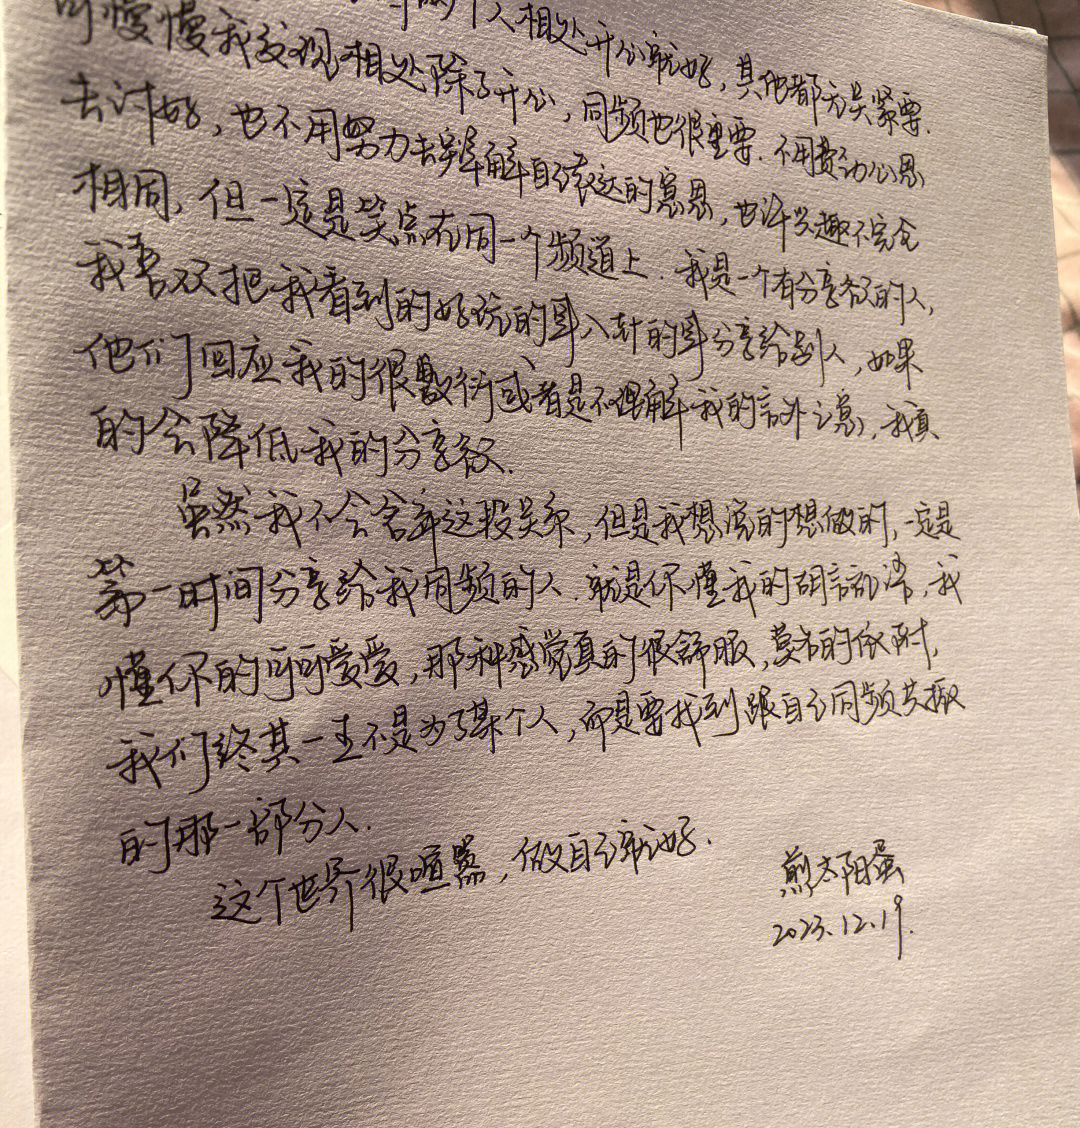 个人相处开心就好，其他都无关紧要.
可慢慢我发现相处除了开心，同频也很重要.不用费劲心思
去讨好，也不用努力去解自己表达的意思，也许兴趣不完全
相同，但一定是笑点在同一个频道上.我是一个有分享欲的人，
我喜欢把我看到的好玩的事八卦的事分享给别人，如果
他们回应我的很敷衍或者是不理解我的言外之意，我真
的会降低我的分享欲.
虽然我不会舍弃这段关系，但是我想说的想做的，一定是
第一时间分享给我同频的人.就是你懂我的胡言乱语，我
懂你的可可爱爱，那种感觉真的很舒服，莫名的依附，
我们终其一生不是为了某个人，而是要找到跟自己同频共振
的那一部分人.
这个世界很喧嚣，做自己就好.
煎太阳蛋
2023.12.19.